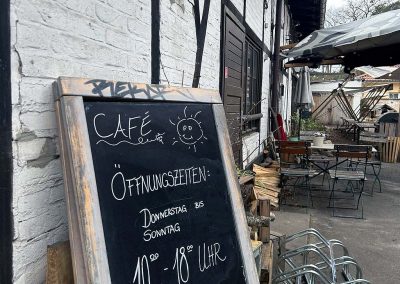 CAFÉ
ÖFFNUNGSZEITEN:
DONNERSTAG BIS
SONNTAG
10⁰⁰ - 18⁰⁰ UHR